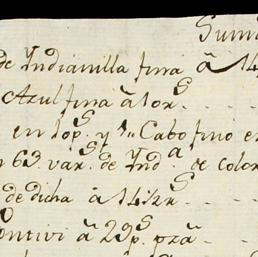 Suma
de Indianilla fina â 14
Azul fina â 10r.s
en 10p.s y 1" Cabo fino en
63. var.s de Ind.a de color
de dicha â 14½r.s
ontivi â 29p. pza